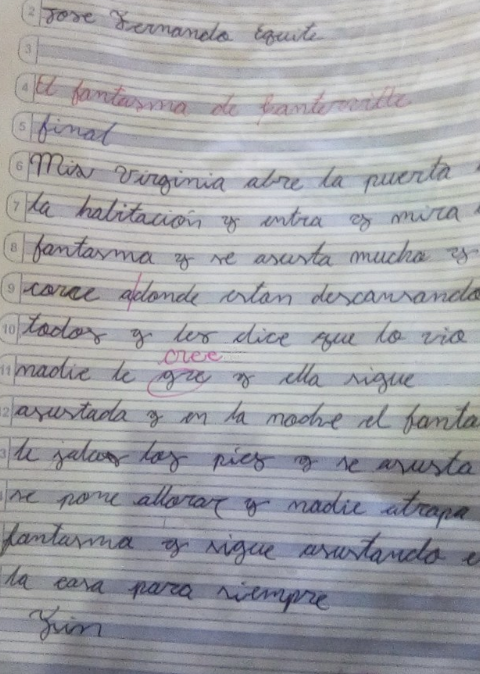 2 Jose Fernando Equite
3
4 El fantasma de Canterville
5 final
6 Mis Virginia abre la puerta
7 la habitación y entra y mira
8 fantasma y se asusta mucha y
9 corre a|donde estan descansando
10 todos y les dice que lo vio
cree
11 nadie le gre y ella sigue
12 asustada y en la noche el fanta
le jala los pies y se asusta
se pone allorar y nadie atrapa
fantasma y sigue asustando e
la casa para siempre
Fin